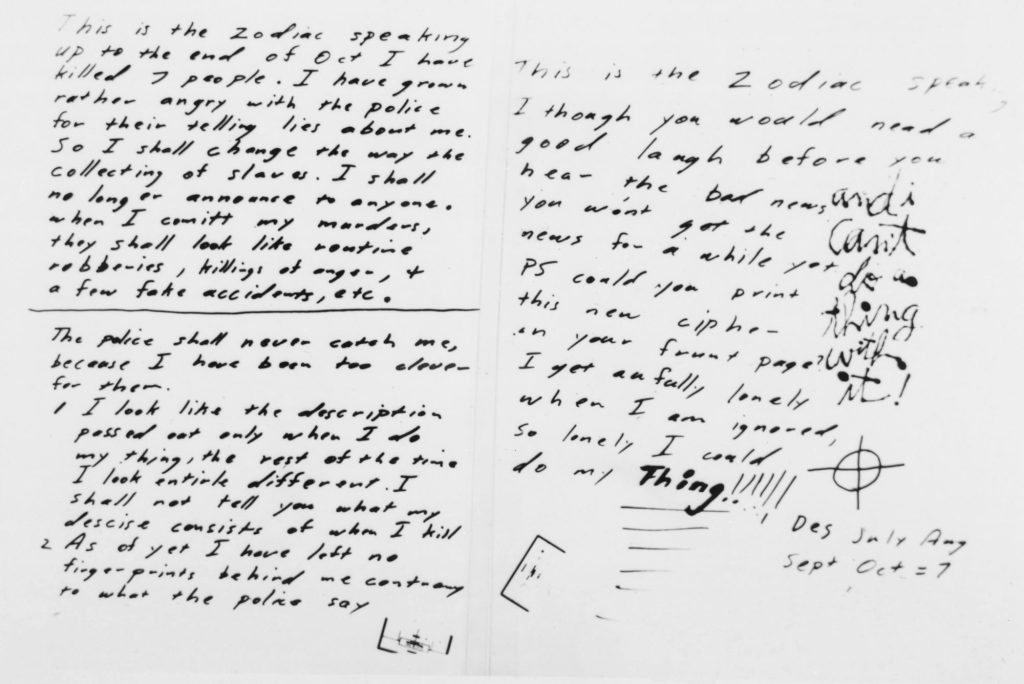 This is the Zodiac speaking
up to the end of Oct I have
killed 7 people. I have grown
rather angry with the police
for their telling lies about me.
So I shall change the way the
collecting of slaves. I shall
no longer announce to anyone.
when I comitt my murders,
they shall look like routine
robberies, killings of anger, +
a few fake accidents, etc.
The police shall never catch me,
because I have been too clever
for them.
1 I look like the description
passed out only when I do
my thing, the rest of the time
I look entirle different. I
shall not tell you what my
descise consists of when I kill
2 As of yet I have left no
fingerprints behind me contrary
to what the police say
This is the Zodiac speak
I though you would nead a
good laugh before you
hear the bad news
you won't get the
news for a while yet
PS could you print
this new cipher
in your frunt page?
I get aufully lonely
when I am ignored,
So lonely I could
do my Thing!!!!!!
and i
can't
do a
thing
with
it!
Des July Aug
Sept Oct = 7